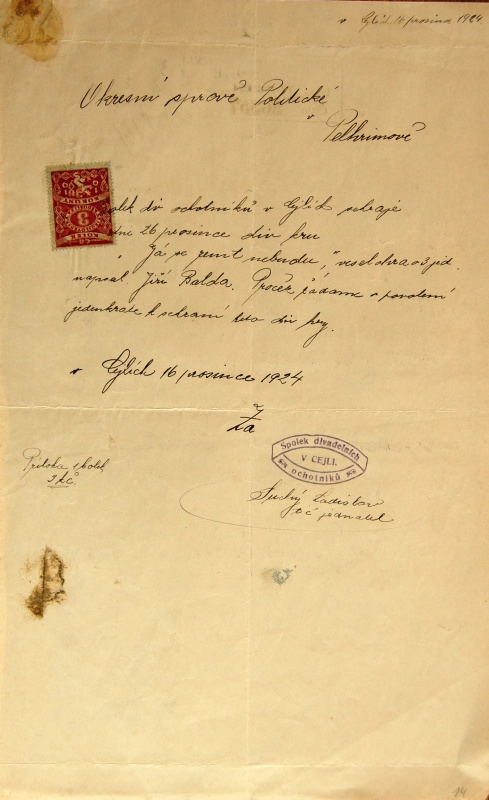 v Cejlích 16 prosince 1924
Okresní správě Politické
v Pelhřimově
3
Spolek div ochotníků v Cejlích sehraje
dne 26 prosince div hru
"Já se ženit nebudu", veselohra o 3 jed.
napsal Jiří Balda. Pročež žádáme o povolení
jedenkráte k sehraní této div hry.
v Cejlích 16 prosince 1924
Za
Spolek divadelních
V CEJLI.
ochotníků
Příloha 1 kolek
3 Kč.
Suchý Ladislav
t č jednatel
14